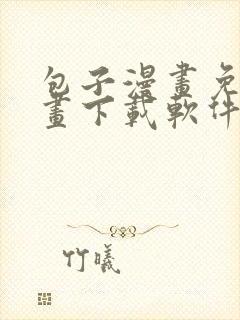 包子漫畫免
畫下載軟件
竹曦